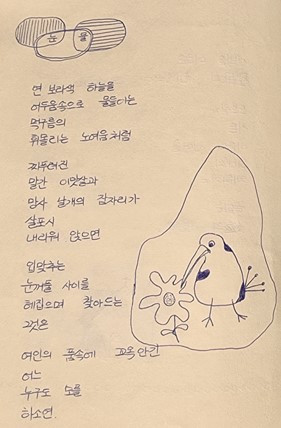 눈 물
연 보라색 하늘을
어두움속으로 물들이는
먹구름의
휘몰리는 노여움처럼
찌푸려진
말간 이맛살과
망사 날개의 잠자리가
살포시
내리워 앉으면
입맞추는
눈꺼풀 사이를
헤집으며 찾아드는
그것은
여인의 품속에 꼬옥 안긴
어느
누구도 모를
하소연.